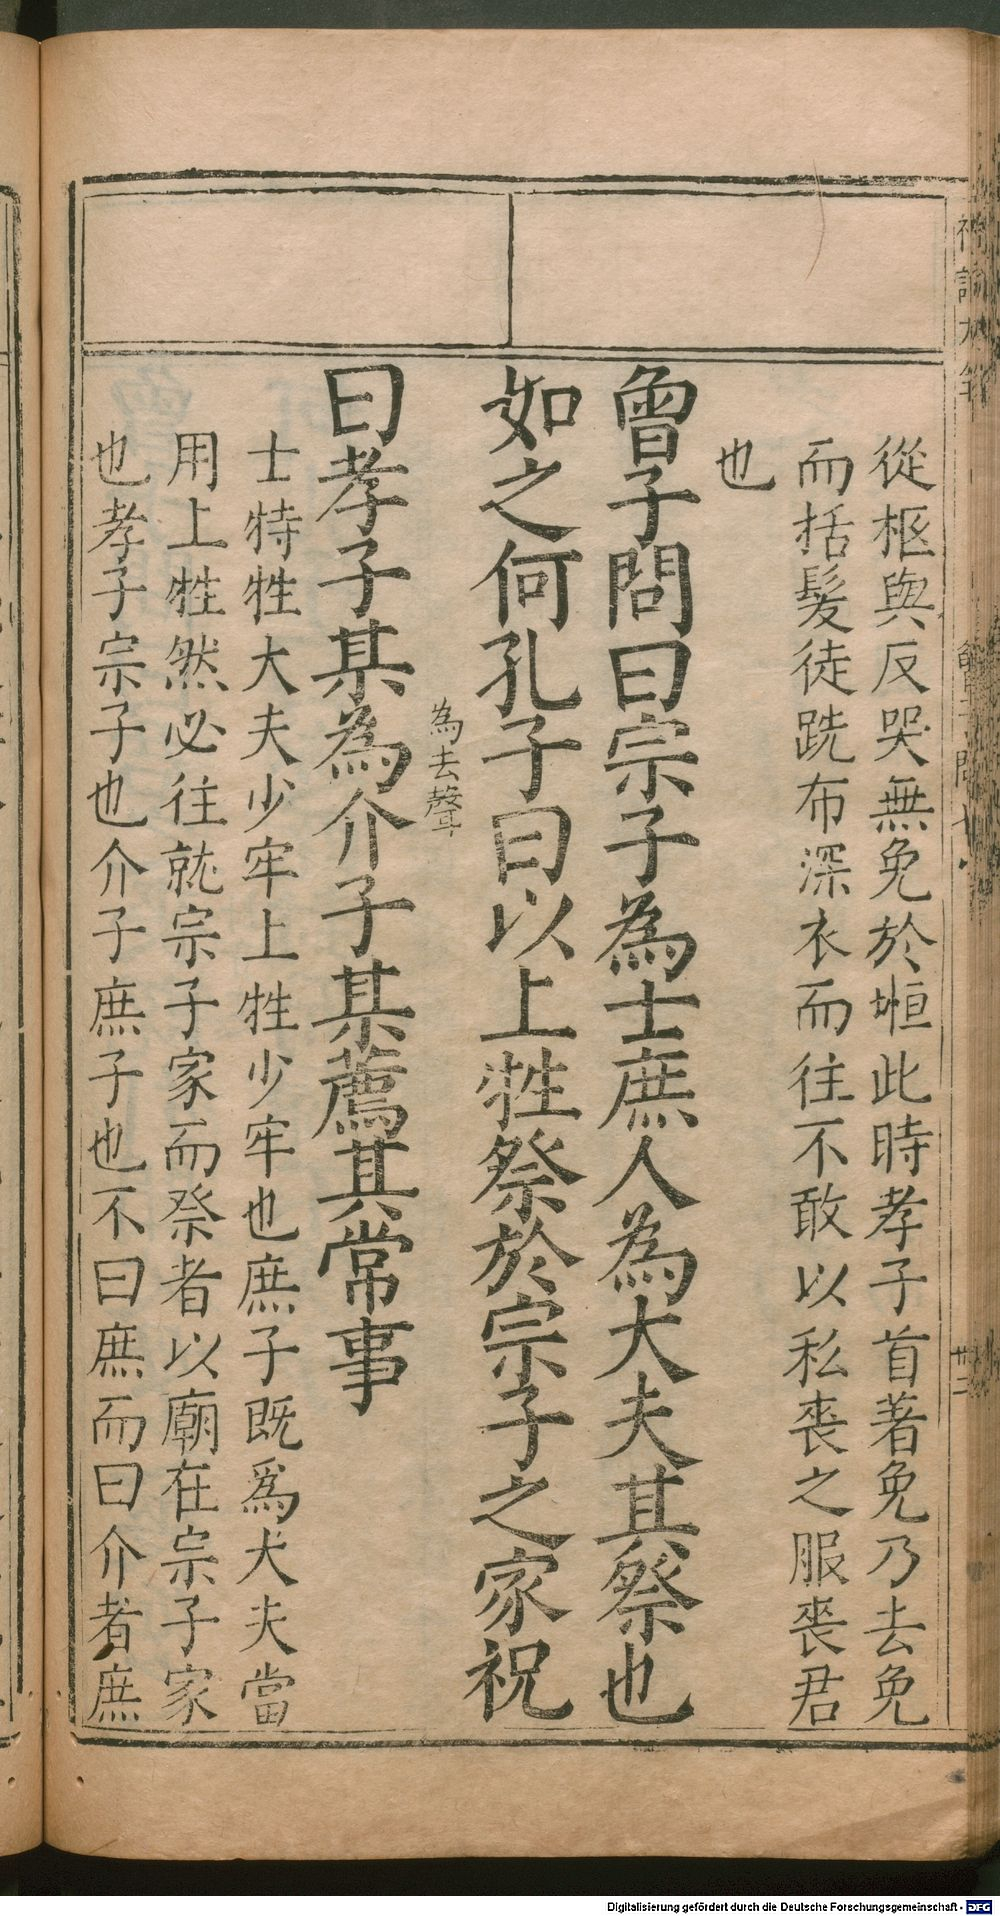 從柩與反哭無免於堩此時孝子首著免乃去免
而括髮徒跣布深衣而往不敢以私喪之服喪君
也
曾子問曰宗子為士庶人為大夫其祭也
如之何孔子曰以上牲祭於宗子之家祝
為去聲
曰孝子某為介子某薦其常事
士特牲大夫少牢上牲少牢也庶子既爲大夫當
用上牲然必往就宗子家而祭者以廟在宗子家
也孝子宗子也介子庶子也不曰庶而曰介者庶
Digitalisierung gefördert durch die Deutsche Forschungsgemeinschaft - DFG